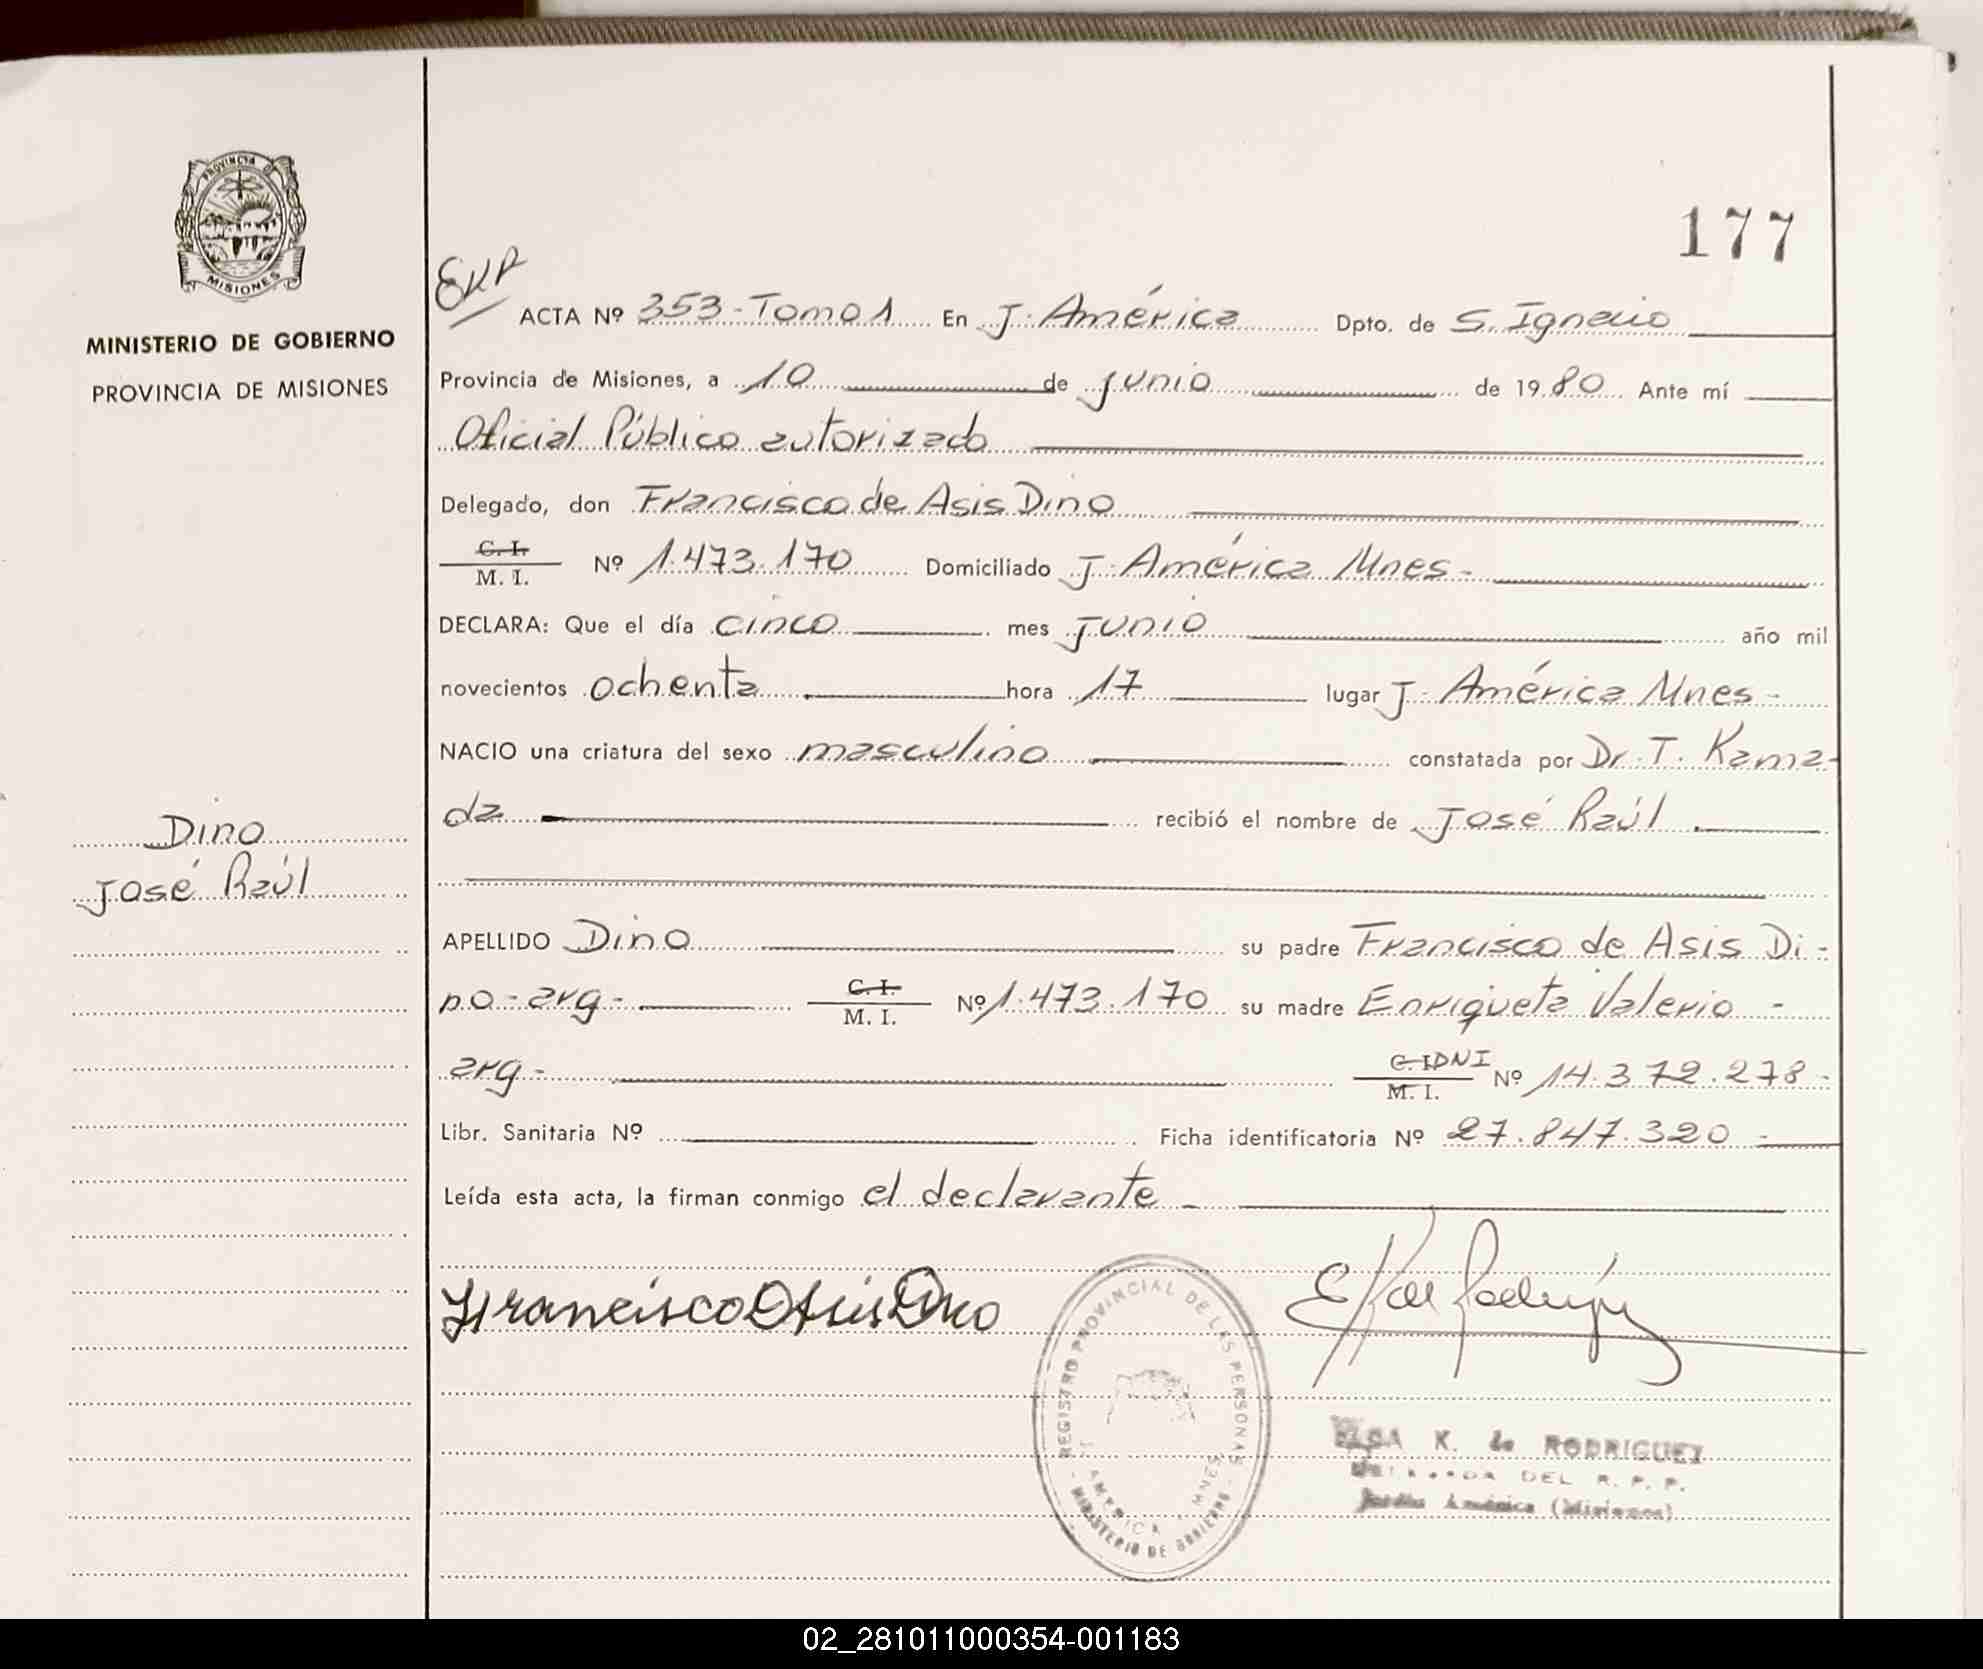 PROVINCIA DE
MISIONES
MINISTERIO DE GOBIERNO
PROVINCIA DE MISIONES
177
ACTA Nº 353-Tomo 1 En J. América Dpto. de S. Ignacio
Provincia de Misiones, a 10 de junio de 1980 Ante mí
Oficial Público autorizado
Delegado, don Francisco de Asis Dino
C. I.
M. I. Nº 1.473.170 Domiciliado J. América Mnes-
DECLARA: Que el día cinco mes junio año mil
novecientos ochenta hora 17 lugar J. América Mnes-
NACIO una criatura del sexo masculino constatada por Dr. T. Kama-
da recibió el nombre de José Raúl
Dino
José Raúl
APELLIDO Dino su padre Francisco de Asis Di-
no-arg- C. I. M. I. Nº 1.473.170 su madre Enriqueta Valerio -
arg- C. I. DNI M. I. Nº 14.372.278-
Libr. Sanitaria Nº Ficha identificatoria Nº 27.847.320-
Leída esta acta, la firman conmigo el declarante -
Francisco Asis Dino
REGISTRO PROVINCIAL DE LAS PERSONAS
J. AMERICA - MNES
MINISTERIO DE GOBIERNO
ELSA K. de RODRIGUEZ
DEL R. P. P.
Jardín América (Misiones)
02_281011000354-001183